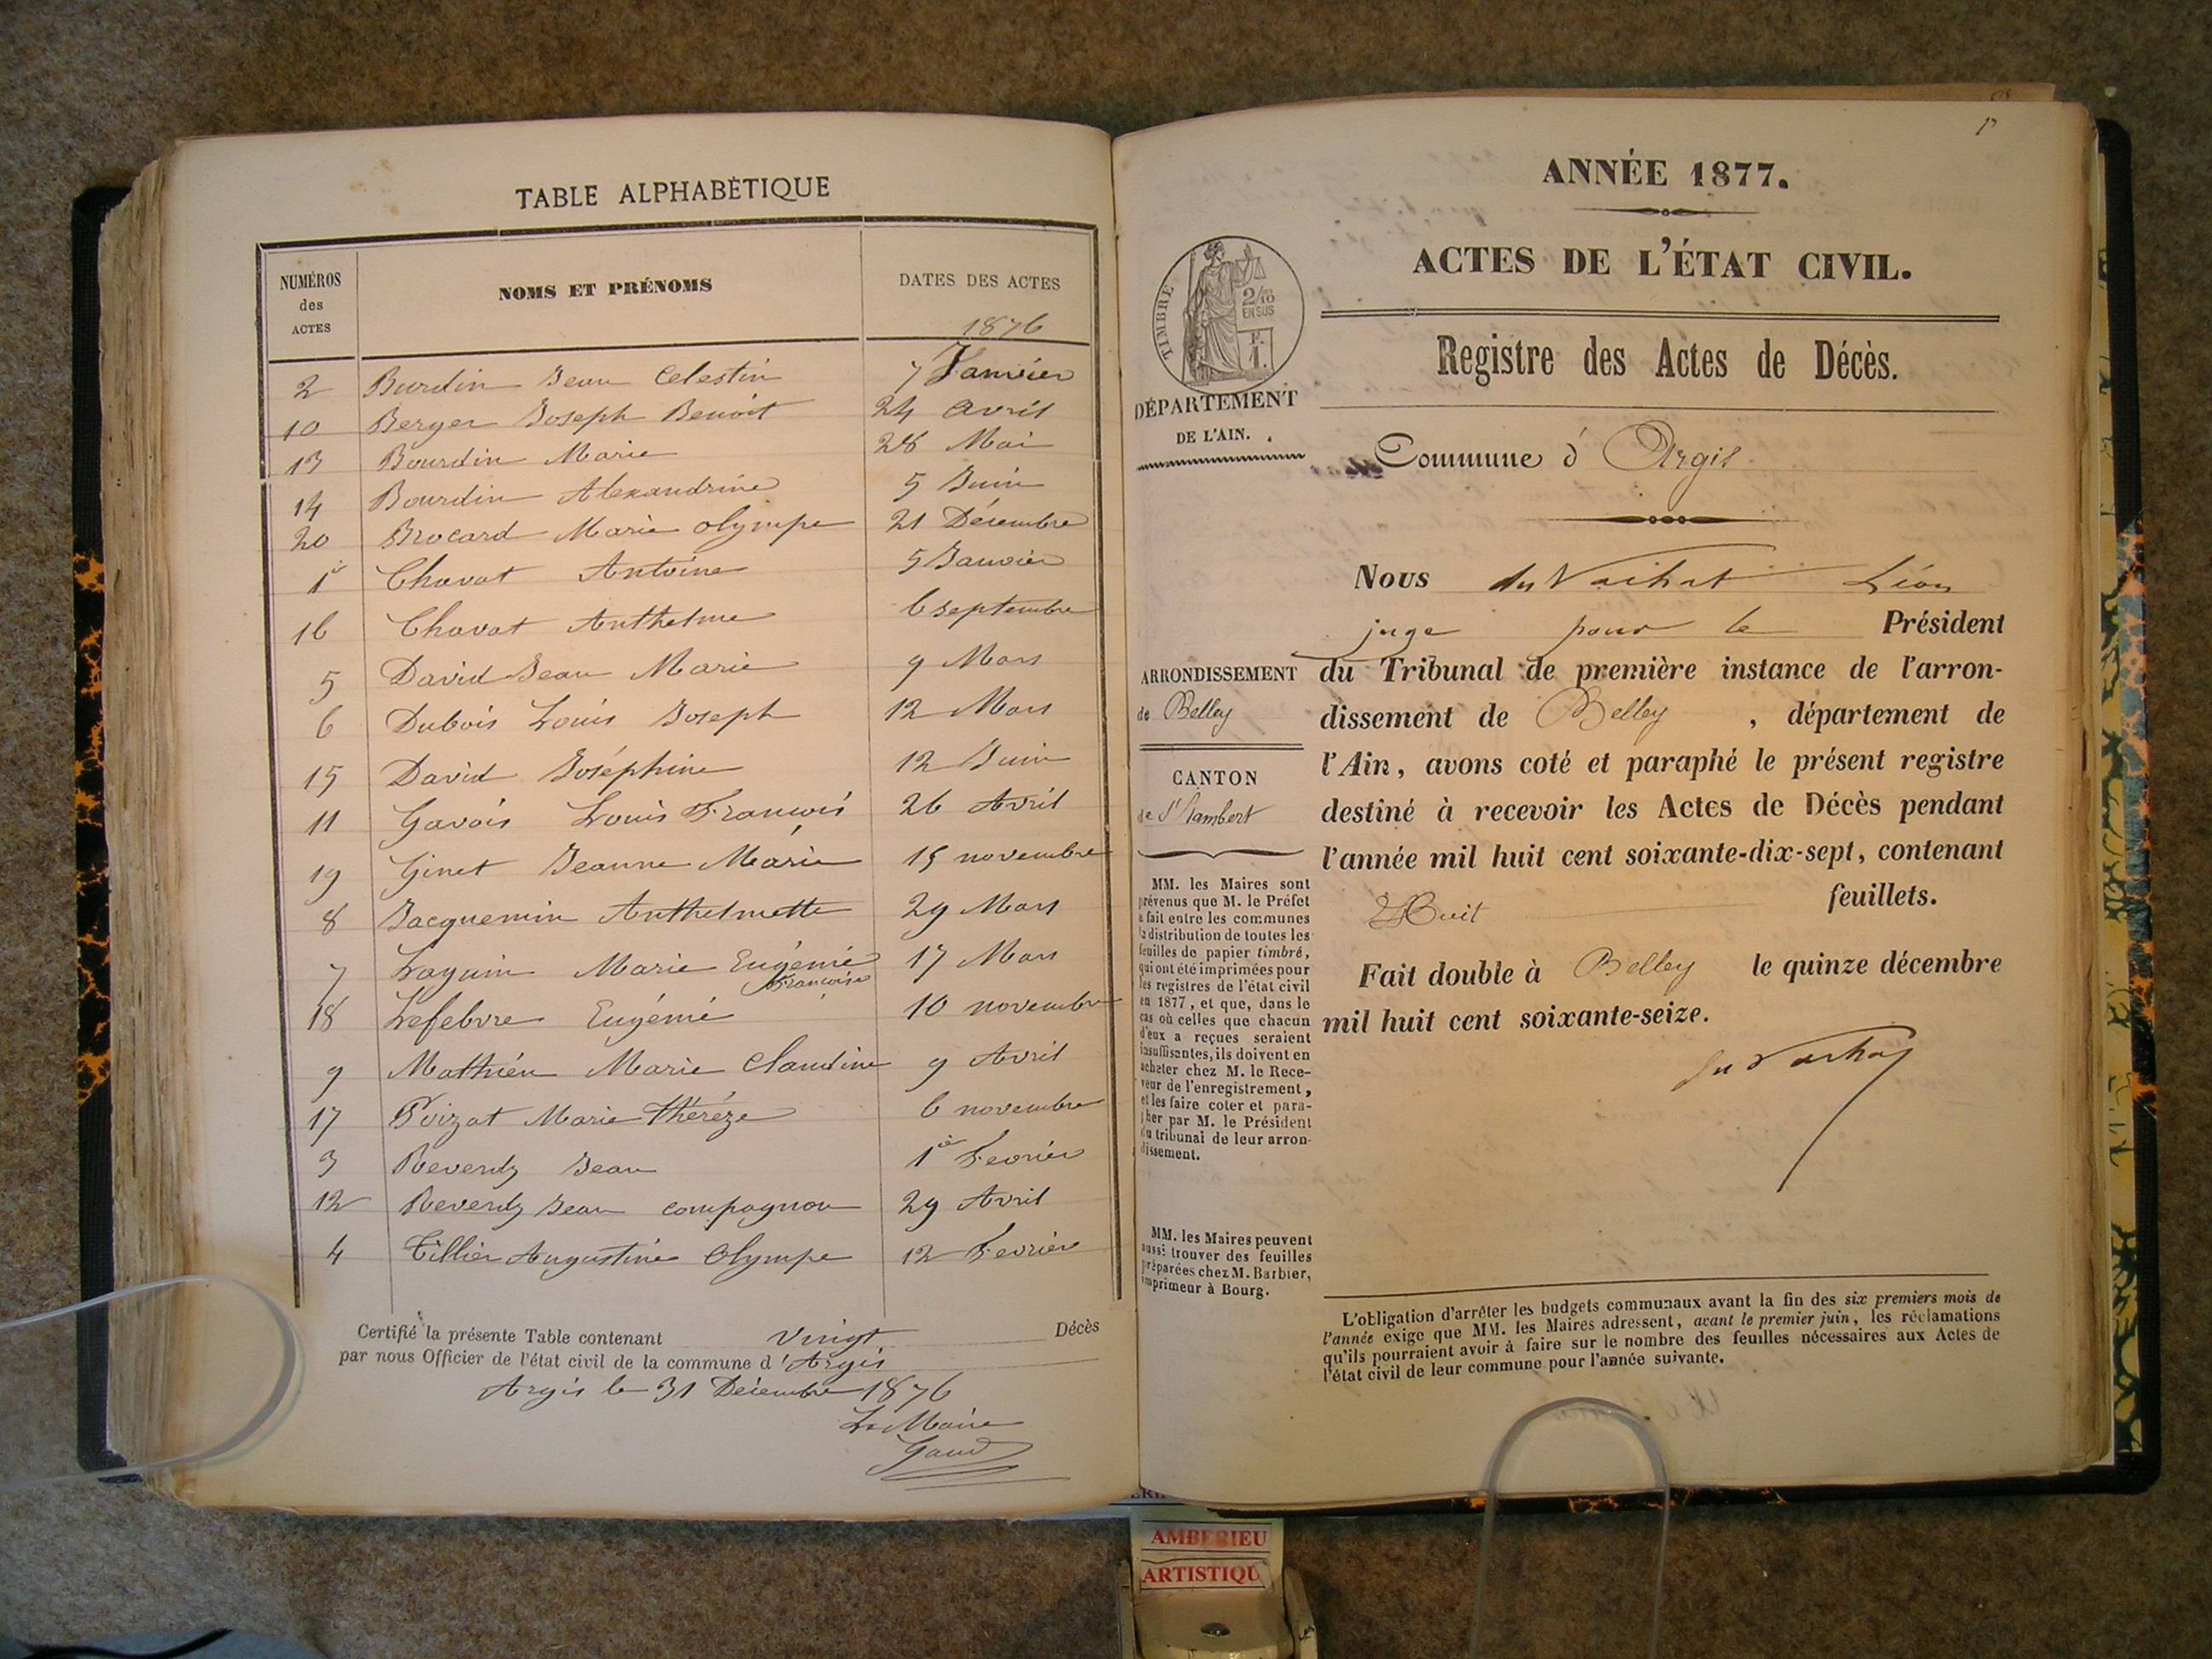 TABLE ALPHABÉTIQUE
NUMÉROS des ACTES
NOMS ET PRÉNOMS
DATES DES ACTES
1876
2 Burdin Jean Celestin 7 Janvier
10 Berger Joseph Benoit 24 Avril
13 Bourdin Marie 28 Mai
14 Bourdin Alexandrine 5 Juin
20 Brocard Marie Olympe 21 Décembre
1er Chavat Antoine 5 Janvier
16 Chavat Anthelme 6 septembre
5 David Jean Marie 9 Mars
6 Dubois Louis Joseph 12 Mars
15 David Joséphine 12 Juin
11 Gavois Louis François 26 Avril
19 Ginet Jeanne Marie 15 novembre
8 Jacquemin Anthelmette 29 Mars
7 Laguin Marie Eugénie 17 Mars
Françoise
18 Lefebvre Eugénie 10 novembre
9 Mathieu Marie Claudine 9 Avril
17 Poizat Marie Théréze 6 novembre
3 Reverdy Jean 1er Fevrier
12 Reverdy Jean compagnon 29 Avril
4 Tillier Augustine Olympe 12 Fevrier
Certifié la présente Table contenant Vingt Décès
par nous Officier de l'état civil de la commune d'Argis
Argis le 31 Décembre 1876
Le Maire
ANNÉE 1877.
ACTES DE L'ÉTAT CIVIL.
TIMBRE
2/10 EN SUS
F. 1.
Registre des Actes de Décès.
DÉPARTEMENT
DE L'AIN.
Commune d'Argis
Nous du Vachat Léon
juge pour le Président
du Tribunal de première instance de l'arron-
dissement de Belley, département de
l'Ain, avons coté et paraphé le présent registre
destiné à recevoir les Actes de Décès pendant
l'année mil huit cent soixante-dix-sept, contenant
Huit feuillets.
Fait double à Belley le quinze décembre
mil huit cent soixante-seize.
du Vachat
ARRONDISSEMENT
de Belley
CANTON
de St Rambert
MM. les Maires sont
prévenus que M. le Préfet
a fait entre les communes
la distribution de toutes les
feuilles de papier timbré,
qui ont été imprimées pour
les registres de l'état civil
en 1877, et que, dans le
cas où celles que chacun
d'eux a reçues seraient
insuffisantes, ils doivent en
acheter chez M. le Rece-
veur de l'enregistrement,
et les faire coter et para-
pher par M. le Président
du tribunal de leur arron-
dissement.
MM. les Maires peuvent
aussi trouver des feuilles
préparées chez M. Barbier,
imprimeur à Bourg.
L'obligation d'arrêter les budgets communaux avant la fin des six premiers mois de
l'année exige que MM. les Maires adressent, avant le premier juin, les réclamations
qu'ils pourraient avoir à faire sur le nombre des feuilles nécessaires aux Actes de
l'état civil de leur commune pour l'année suivante.
AMBERIEU
ARTISTIQU